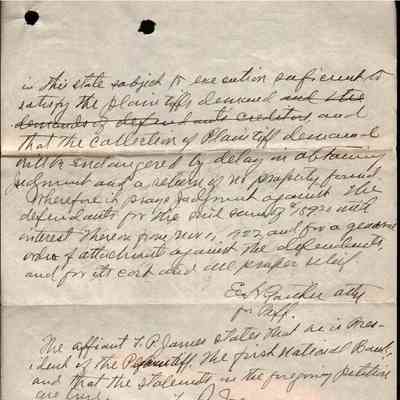 in this state subject to execution suficient to
satisfy the plaintiffs demand and the
demands of defendants creditors, and
that the collection of Plaintiff demand
will be endangered by delay in obtaining
judgment and a return of no property found
Therefore it prays judgment against the
defendants for the said sum of with
interest thereon from Nov 11, 1902 and for a general
order of attachment against the defendants,
and for its cost and all proper relief.
Gaither atty
for Plff.
The affiant T. P. James states that he is Pres-
ident of the Plaintiff, The first National Bank,
and that the statements in the foregoing petition
are true